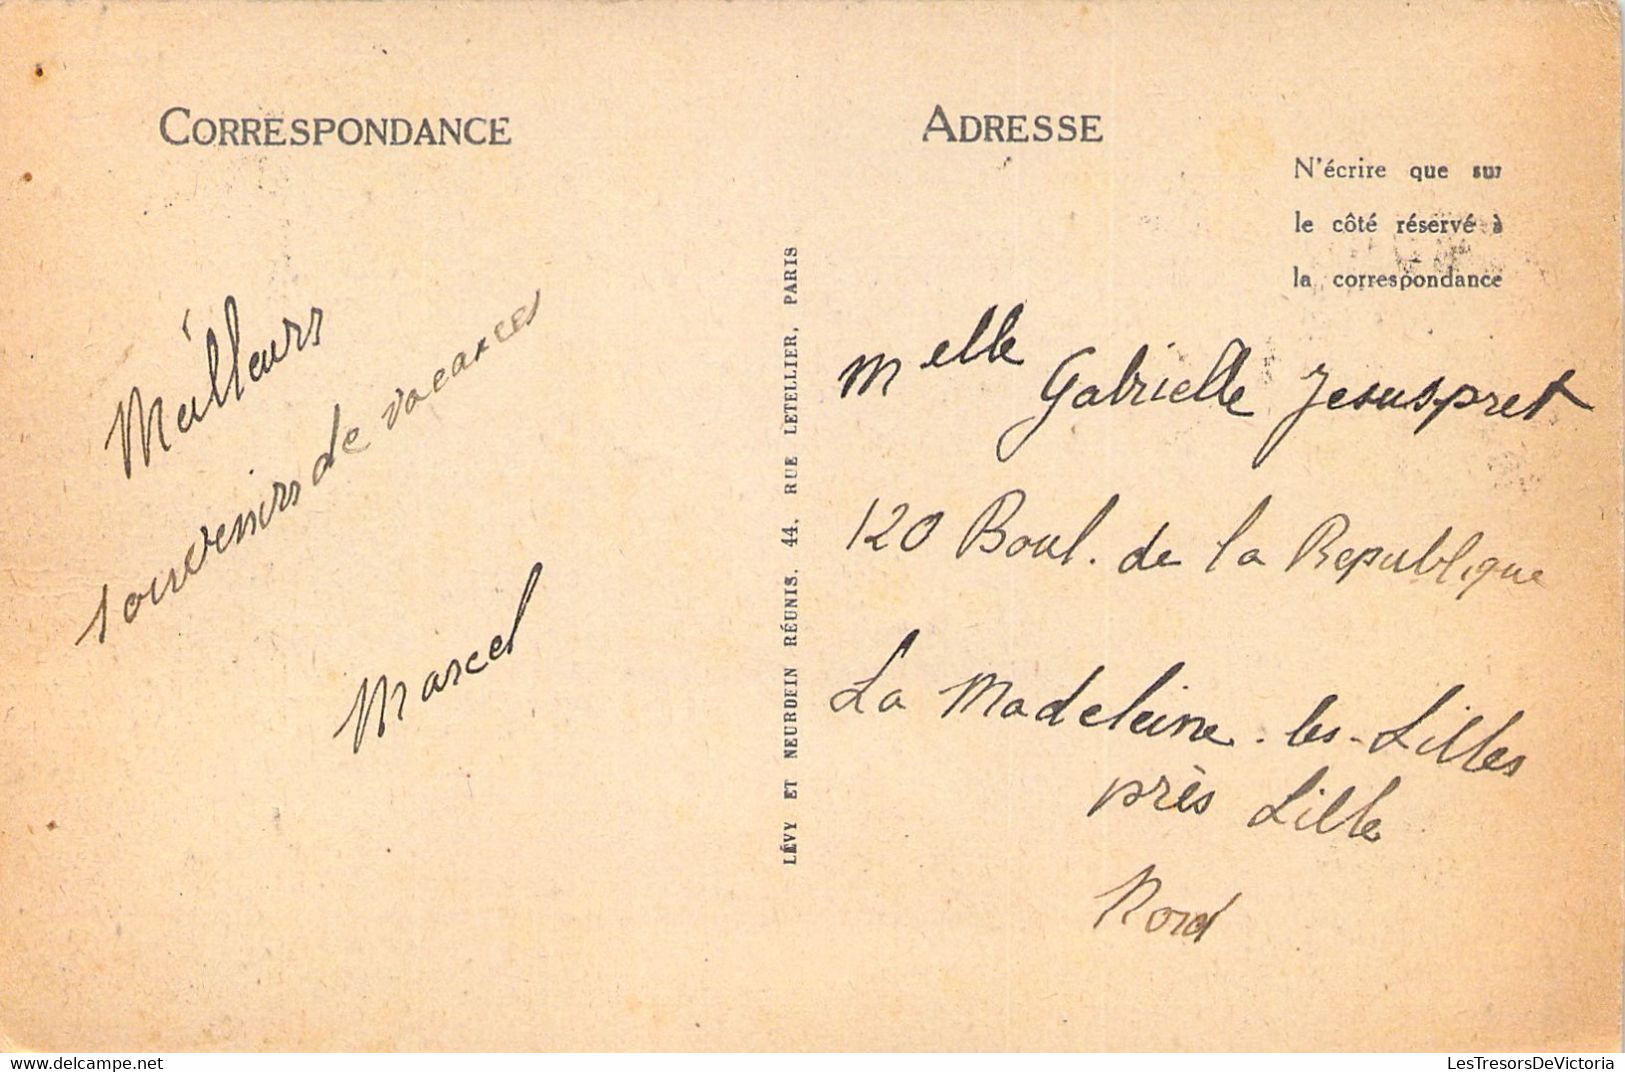 CORRESPONDANCE
Meilleurs
souvenirs de vacances
Marcel
LÉVY ET NEURDEIN RÉUNIS, 44, RUE LETELLIER, PARIS
ADRESSE
N'écrire que sur
le côté réservé à
la correspondance
Melle Gabrielle Jesuspret
120 Boul. de la Republique
La Madeleine-les-Lilles
près Lille
Nord
LesTresorsDeVictoria